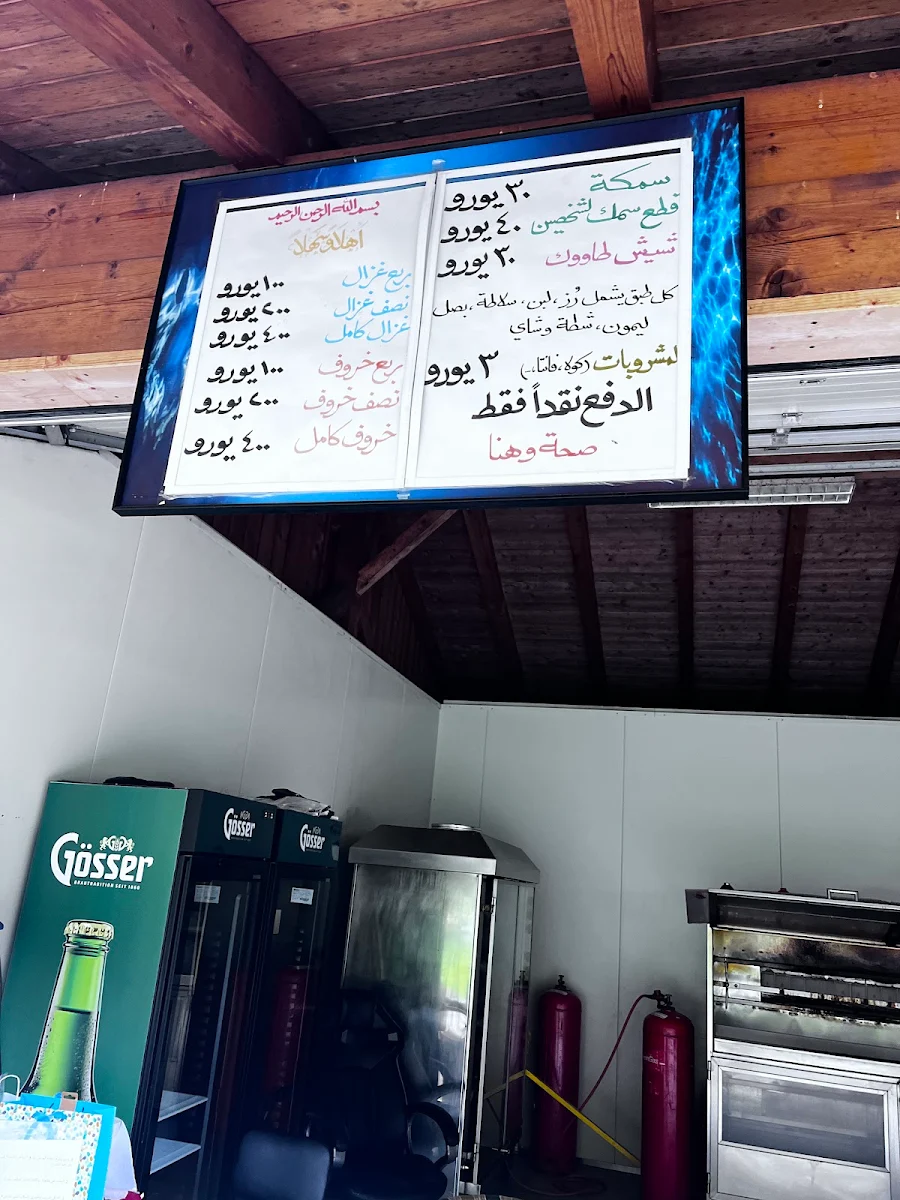 بسم الله الرحمن الرحيم
اهلاً وسهلاً
ربع غزال ١٠٠ يورو
نصف غزال ٢٠٠ يورو
غزال كامل ٤٠٠ يورو
ربع خروف ١٠٠ يورو
نصف خروف ٢٠٠ يورو
خروف كامل ٤٠٠ يورو
سمكة ٣٠ يورو
قطع سمك لشخصين ٤٠ يورو
شيش طاووك ٣٠ يورو
كل طبق يشمل رُز، لبن، سلاطة، بصل
ليمون، شطة وشاي
لمشروبات (كولا، فانتا،..) ٣ يورو
الدفع نقداً فقط
صحة وهنا
Gösser
BRAUTRADITION SEIT 1860
Gösser
Gösser